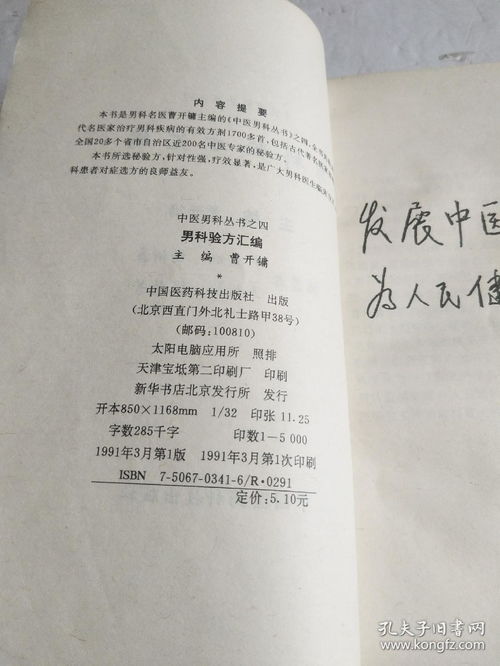 内容提要
本书是男科名医曹开镛主编的《中医男科丛书》之四,全书
代名医家治疗男科疾病的有效方剂1700多首,包括古代著名医家
全国20多个省市自治区近200名中医专家的秘验方。
本书所选秘验方,针对性强,疗效显著,是广大男科医生临
科患者对症选方的良师益友。
中医男科丛书之四
男科验方汇编
主编 曹开镛
*
中国医药科技出版社 出版
(北京西直门外北礼士路甲38号)
(邮码:100810)
太阳电脑应用所 照排
天津宝坻第二印刷厂 印刷
新华书店北京发行所 发行
开本850×1168mm 1/32 印张 11.25
字数285千字 印数1-5 000
1991年3月第1版 1991年3月第1次印刷
ISBN 7-5067-0341-6/R·0291
定价:5.10元
发展中医
为人民健
孔夫子旧书网
www.kongfz.com